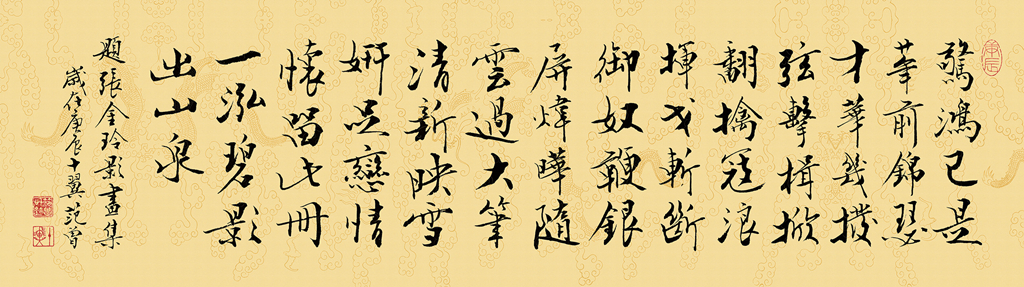 驚鴻已是
廿年前錦瑟
才華幾撥
弦擊楫掀
翻擒寇浪
揮戈斬斷
御奴鞭銀
屏煒曄隨
雲過大筆
清新映雪
妍足戀情
懷留此冊
一泓碧影
出山泉
題張金玲影畫集
歲在庚辰十翼范曾